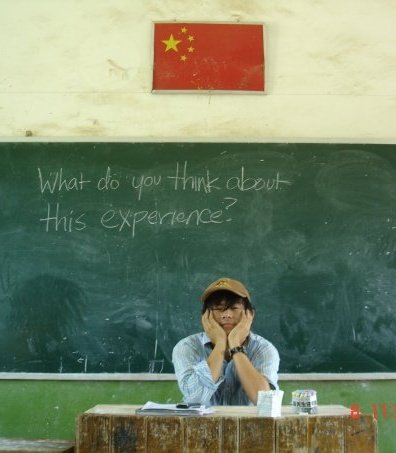 What do you think about
this experience?